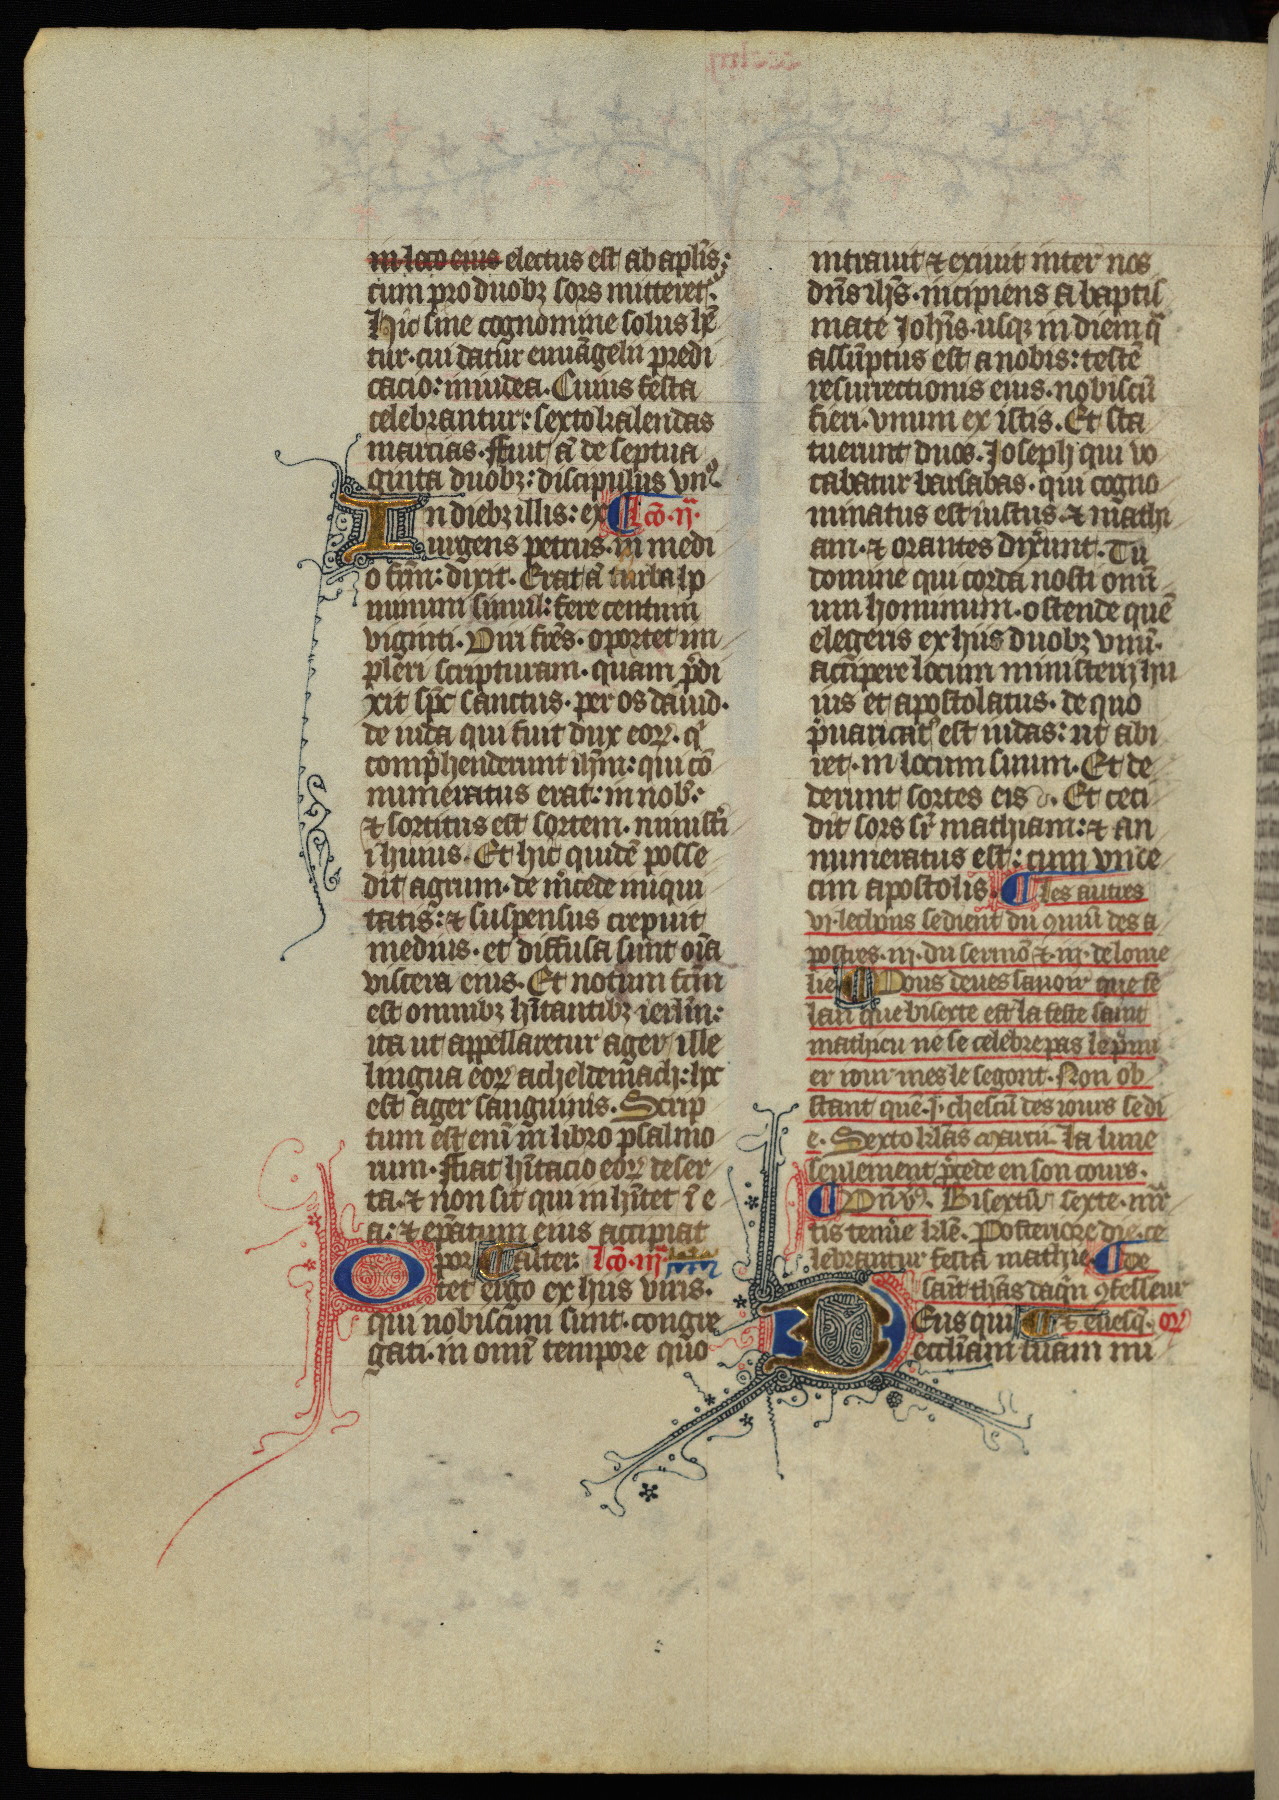 in loco eius electus est ab apl̄is:
cum pro duobꝫ sors mitteret᷑.
Hic sine cognomine solus hr̄
tur. cui datur euuāgelii predi
cacio: in iudea. Cuius festa
celebrantur: sexto kalendas
marcias. ffuit ā de septua
ginta duobꝫ: discipulus vn᷒
In diebꝫ illis: ex lc̄o. ij.
urgens petrus. in medi
o fr̄m: dixit. Erat ā turba ho
minum simul: fere centum
viginti. Viri fr̄es. oportet im
pleri scripturam. quam p̄di
xit sp̄c sanctus. per os dauid.
de iuda qui fuit dux eoꝝ. q̄
comp̄henderunt ih̄m: qui cō
numeratus erat: in nob̄:
⁊ sortitus est sortem. ministr̄i
i huius. Et hic quidē posse
dit agrum. de m̄cede iniqui
tatis: ⁊ suspensus crepuit
medius. et diffusa sunt om̄a
viscera eius. Et notum fc̄m
est omnibꝫ hītantibꝫ ierl̄m:
ita ut appellaretur ager ille
lingua eoꝝ acheldemach: hoc
est ager sanguinis. Scrip
tum est eni in libro psalmo
rum. ffiat hītacio eoꝝ deser
ta. ⁊ non sit qui inhītet ī e
a: ⁊ ep̄atum eius accipiat
por alter. lc̄o. iij.
O tet ergo ex hiis viris.
qui nobiscum sunt. congre
gati. in omī tempore quo
intrauit ⁊ exiuit inter nos
dn̄s ih̄s. incipiens a baptis
mate Joh̄is. usqꝫ in diem q̄
assūptus est a nobis: testē
resurrectionis eius. nobiscū
fieri. vnum ex istis. Et sta
tuerunt duos. Joseph qui vo
cabatur barsabas. qui cogno
minatus est iustus. ⁊ mathi
am. ⁊ orantes dixerunt. Tu
domine qui corda nosti omī
um hominum. ostende quē
elegeris ex hiis duobꝫ vnū.
accipere locum ministerij hu
ius et apostolatus. de quo
p̄uaricat᷒ est iudas: ut abi
ret. in locum suum. Et de
derunt sortes eis. Et ceci
dit sors sr̄ mathiam: ⁊ an
numeratus est: cum vnde
cim apostolis. les autres
vj. lechons sedient du ꝯmū des a
postres. iij. du sermō ⁊ iij. de lome
lie Vous deues sauoir que se
lan que bisexte est la feste saint
mathieu ne se celebre pas le p̄mi
er iour mes le segont. Non ob
stant quē .j. chescū des iours se di
e. Sexto kl̄as marcii. la lune
seulement p̄cede en son cours.
Vn̄ v᷒. Bisextū sexte mr̄
tis tenuere kl̄e. Posteriore die ce
lebrantur festa mathie de
sāit th̄as daqn̄ ꝯfesseur
Deus qui et euesq̄. oꝝ
eccl̄iam tuam mi